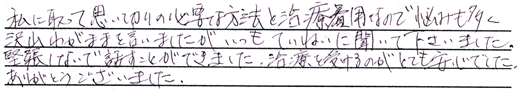 私に取って思い切りの必要な方法と治療費用なので悩みも多く
沢山わがままを言いましたがいつもていねいに聞いて下さいました。
緊張しないで話すことができました。治療を受けるのがとても安心でした。
ありがとうございました。